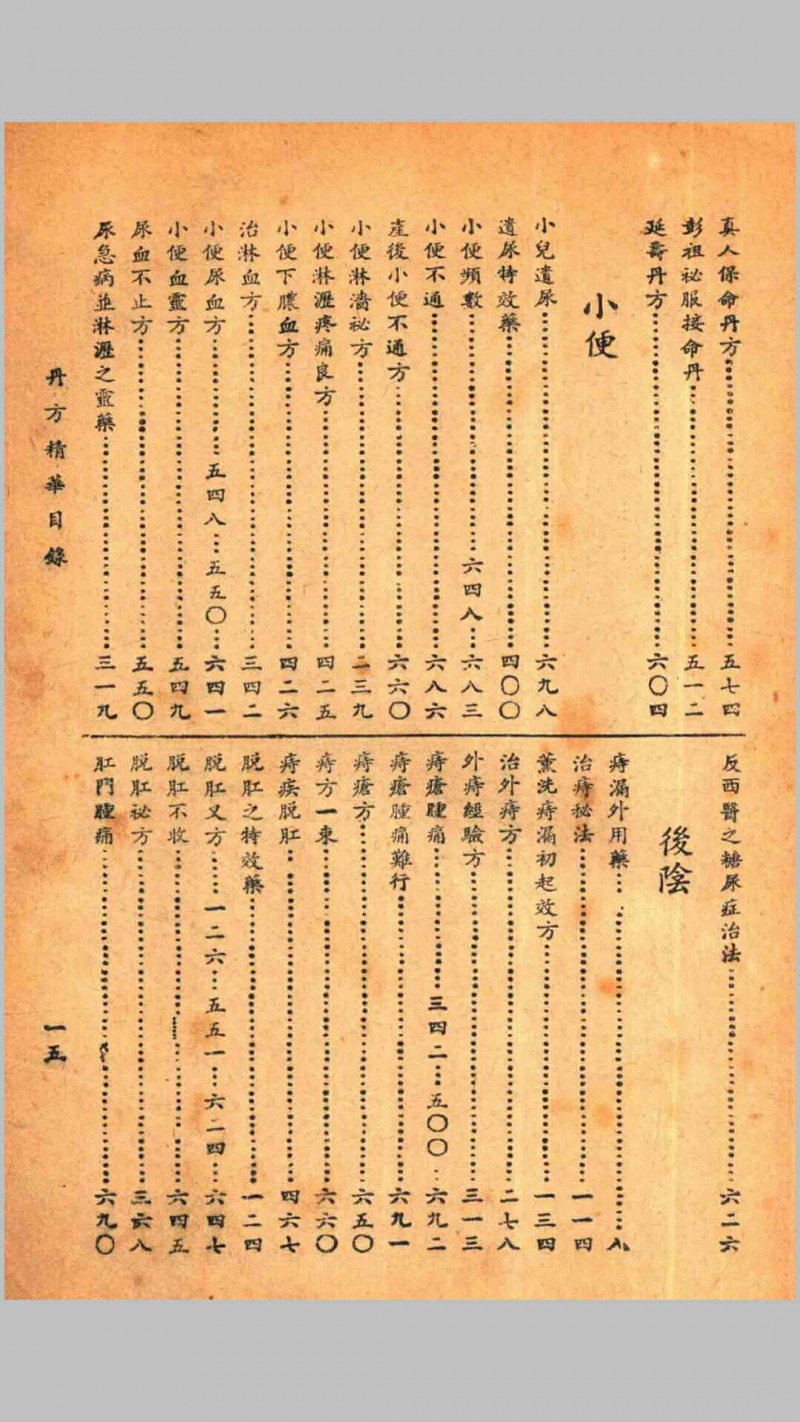 真人保命丹方……五七四
彭祖祕服接命丹……五一二
延壽丹方……六〇四
小便
小兒遺尿……六九八
遺尿特效藥……四〇〇
小便頻數……六四八…六八三
小便不通……六八六
產後小便不通方……六六〇
小便淋濇祕方……二三九
小便淋瀝疼痛良方……四二五
小便下膿血方……四二六
治淋血方……三四二
小便尿血方……五四八…五五〇…六四一
小便血靈方……五四九
尿血不止方……五五〇
尿急病並淋瀝之靈藥……三一九
反西醫之糖尿症治法……六二六
後陰
痔漏外用藥……八
治痔秘法……一一四
薰洗痔漏初起效方……一三四
治外痔方……二七八
外痔經驗方……三一三
痔瘡腫痛……三四二…五〇〇…六九二
痔瘡腫痛難行……六九一
痔瘡方……六五〇
痔方一束……六六〇
痔疾脫肛……四六七
脫肛之特效藥……一二四
脫肛又方……一二六…五五一…六二四…六四七
脫肛不收……六四五
脫肛祕方……三六八
肛門腫痛……六九〇
丹方精華目錄
一五